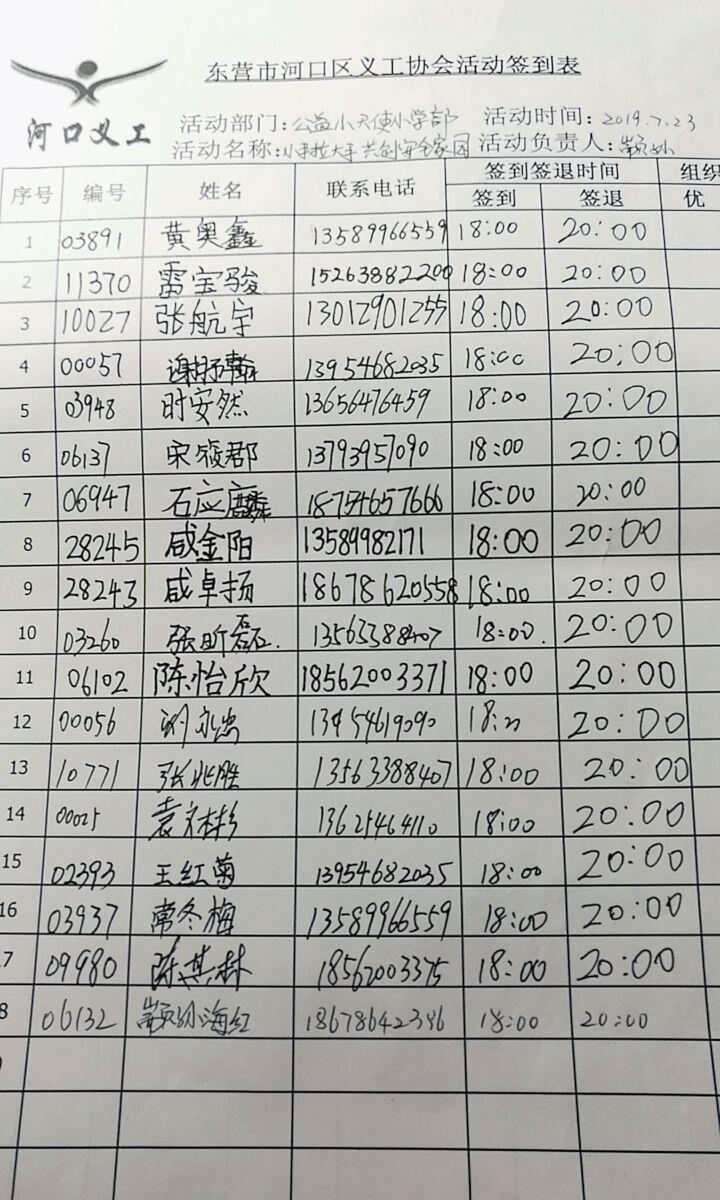 东营市河口区义工协会活动签到表
河口义工
活动部门:公益小天使小学部 活动时间:2019.7.23
活动名称:小手拉大手 共创安全家园 活动负责人:颛孙
序号 编号 姓名 联系电话 签到签退时间 组织
签到 签退 优
1 03891 黄奥鑫 13589966559 18:00 20:00
2 11370 雷宝骏 15263882200 18:00 20:00
3 10027 张航宇 13012901255 18:00 20:00
4 00057 谢抒翰 13954682035 18:00 20:00
5 03948 时安然 13656476459 18:00 20:00
6 06137 宋筱郡 13793957090 18:00 20:00
7 06947 石应麟 18754657666 18:00 20:00
8 28245 咸金阳 13589982171 18:00 20:00
9 28243 咸卓扬 18678620558 18:00 20:00
10 03260 张昕磊. 13563388407 18:00. 20:00
11 06102 陈怡欣 18562003371 18:00 20:00
12 00056 13454619090 18: 20:00
13 10771 张兆胜 13563388407 18:00 20:00
14 00025 袁 13625464110 18:00 20:00
15 02393 王红菊 13954682035 18:00 20:00
16 03937 常冬梅 13589966559 18:00 20:00
7 09980 陈其林 18562003375 18:00 20:00
8 06132 颛孙海红 18678642346 18:00 20:00